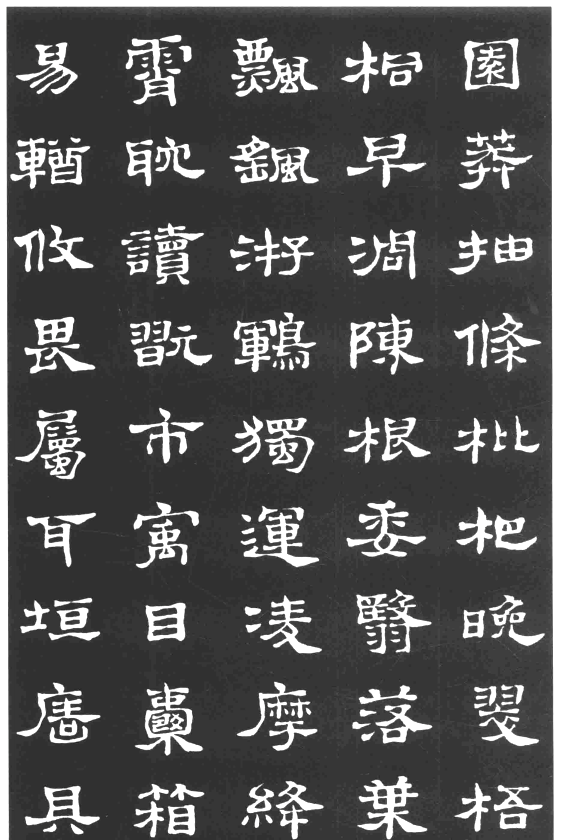 園莽抽條枇杷晚翠梧
桐早凋陳根委翳落葉
飄颻游鶤獨運凌摩絳
霄耽讀翫市寓目囊箱
易輶攸畏屬耳垣廧具